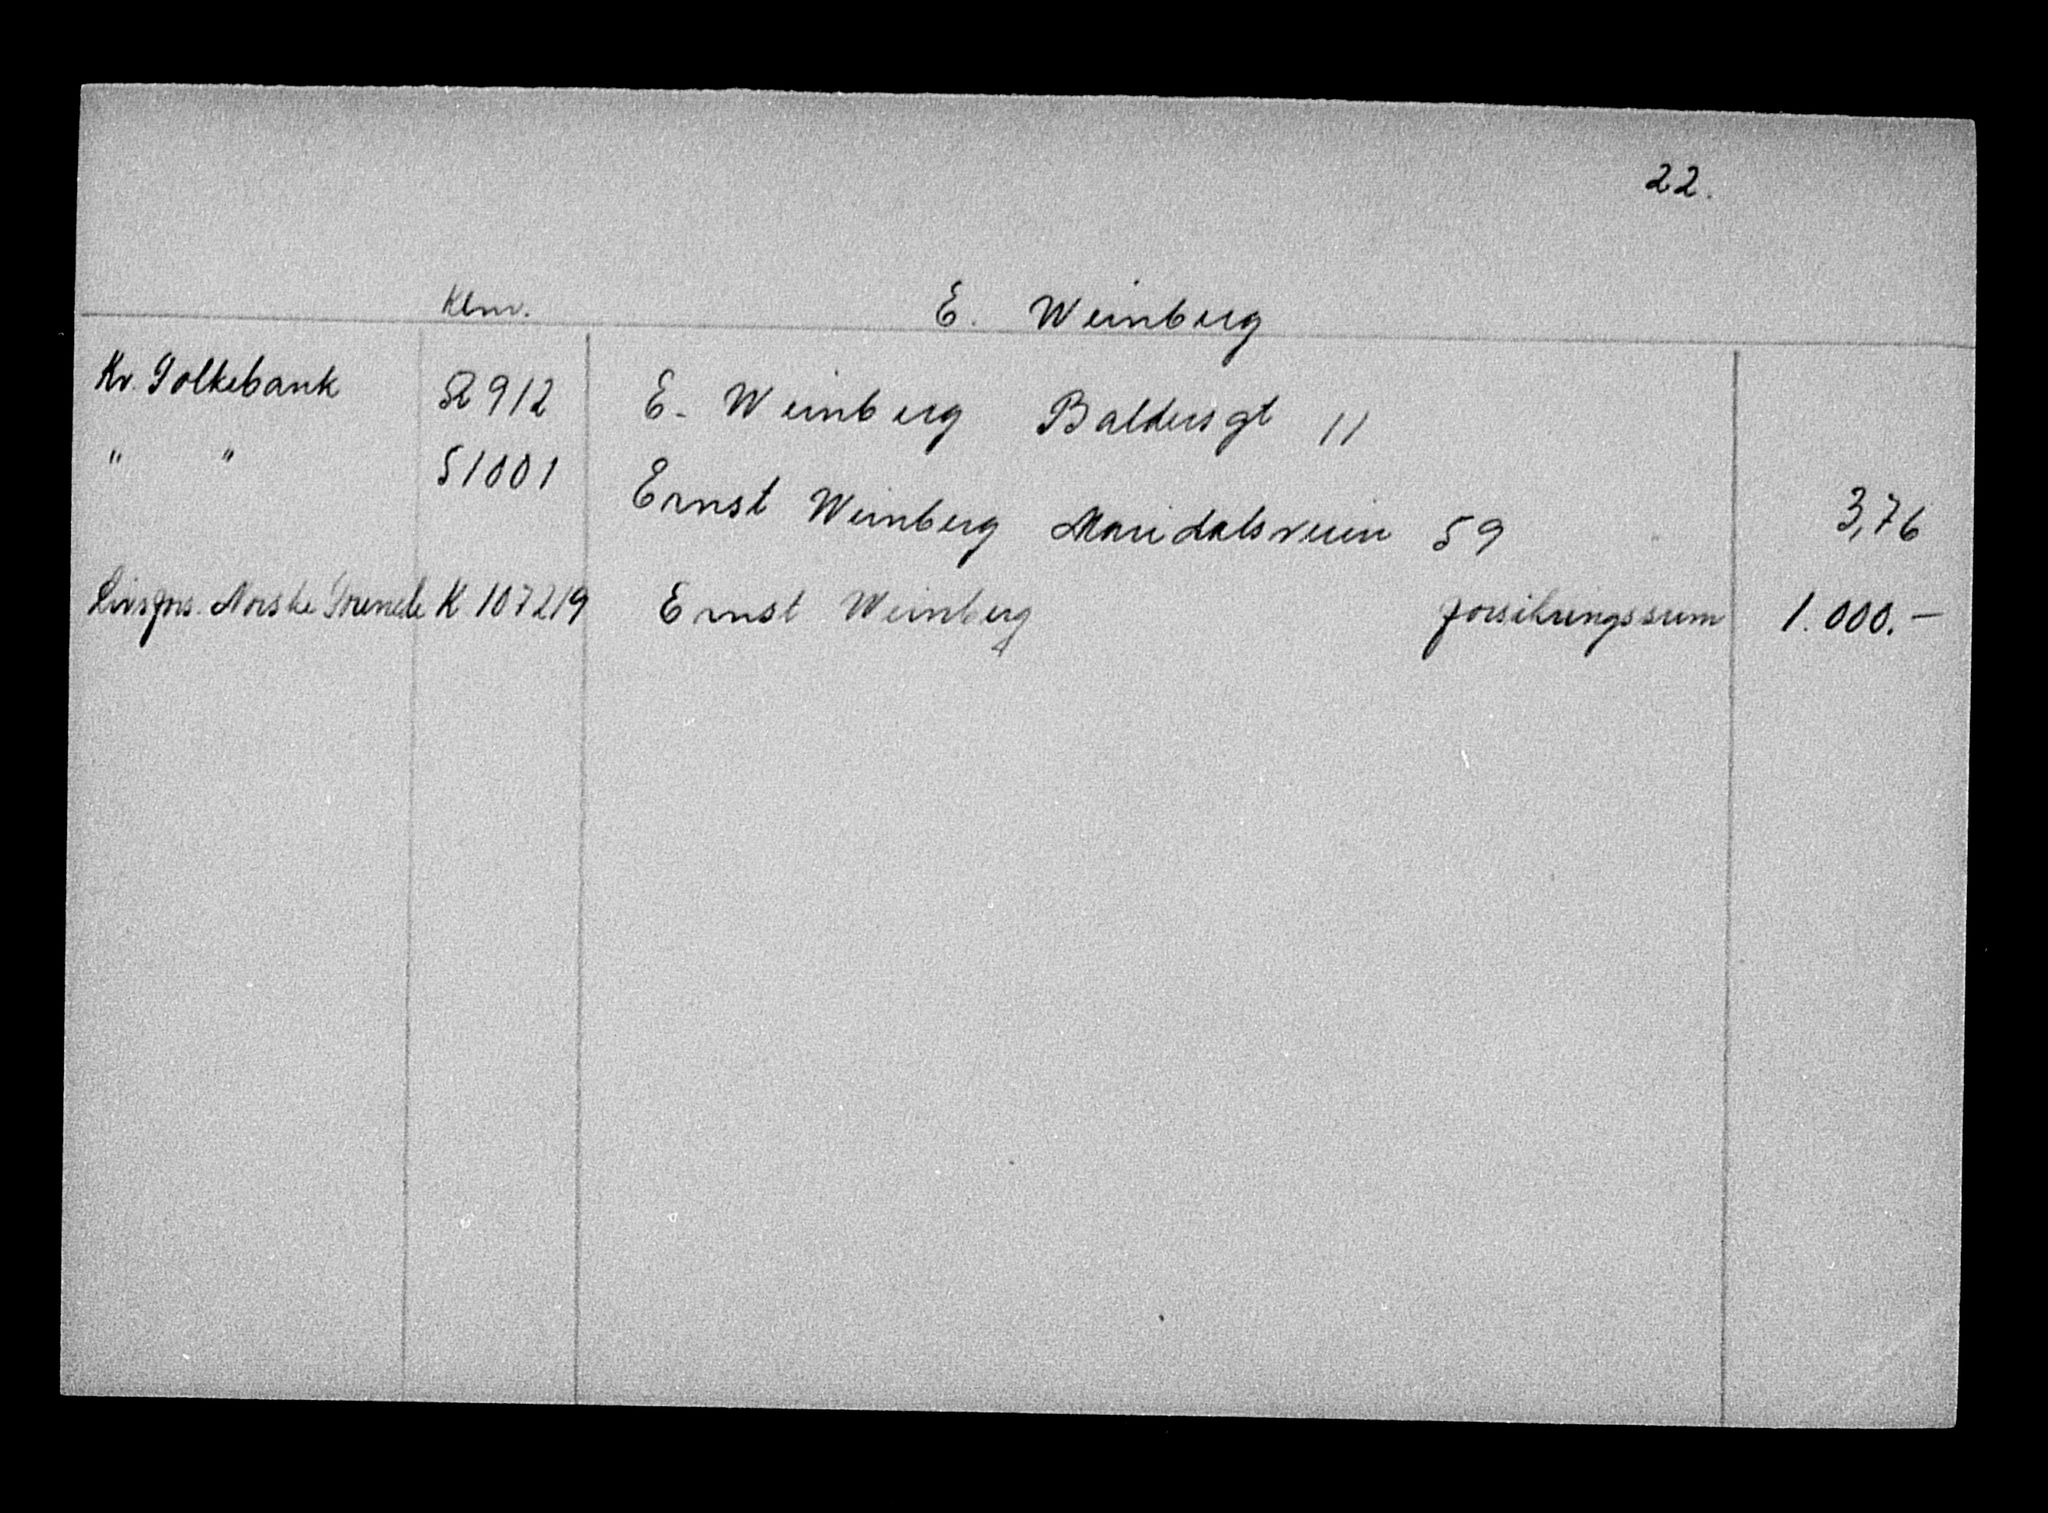 22.
Klnr. E. Weinberg
Kr. Folkebank 52912 E. Weinberg Baldersgt 11
" " 51001 Ernst Weinberg Maridalsveien 59 3,76
Livsfors. Norske Forenede K 107219 Ernst Weinberg forsikringssum 1.000.-